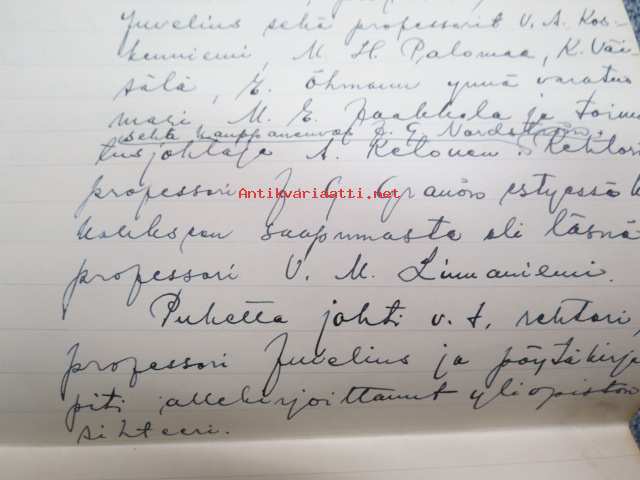 Juvelius sekä professorit V. A. Kos-
kenniemi, M. H. Palomaa, K. Väi-
sälä, E. Öhmann ynnä varatuo
mari M. E. Jaakkola ja toimi
sekä kauppaneuvos J. G. Nordström.
tusjohtaja A. Ketonen. Rehtori
professori J. G. Granön estyessä
kokkseen saapumasta oli läsnä
professori V. M. Linnaniemi.
Puhetta johti v. t. rehtori,
professori Juvelius ja pöytäkirja
piti allekirjoittanut yliopiston
sihteeri.
Antikvariaatti.net